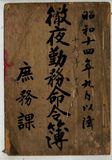 昭和十四年九月以降
徹夜勤務命令簿
庶務課